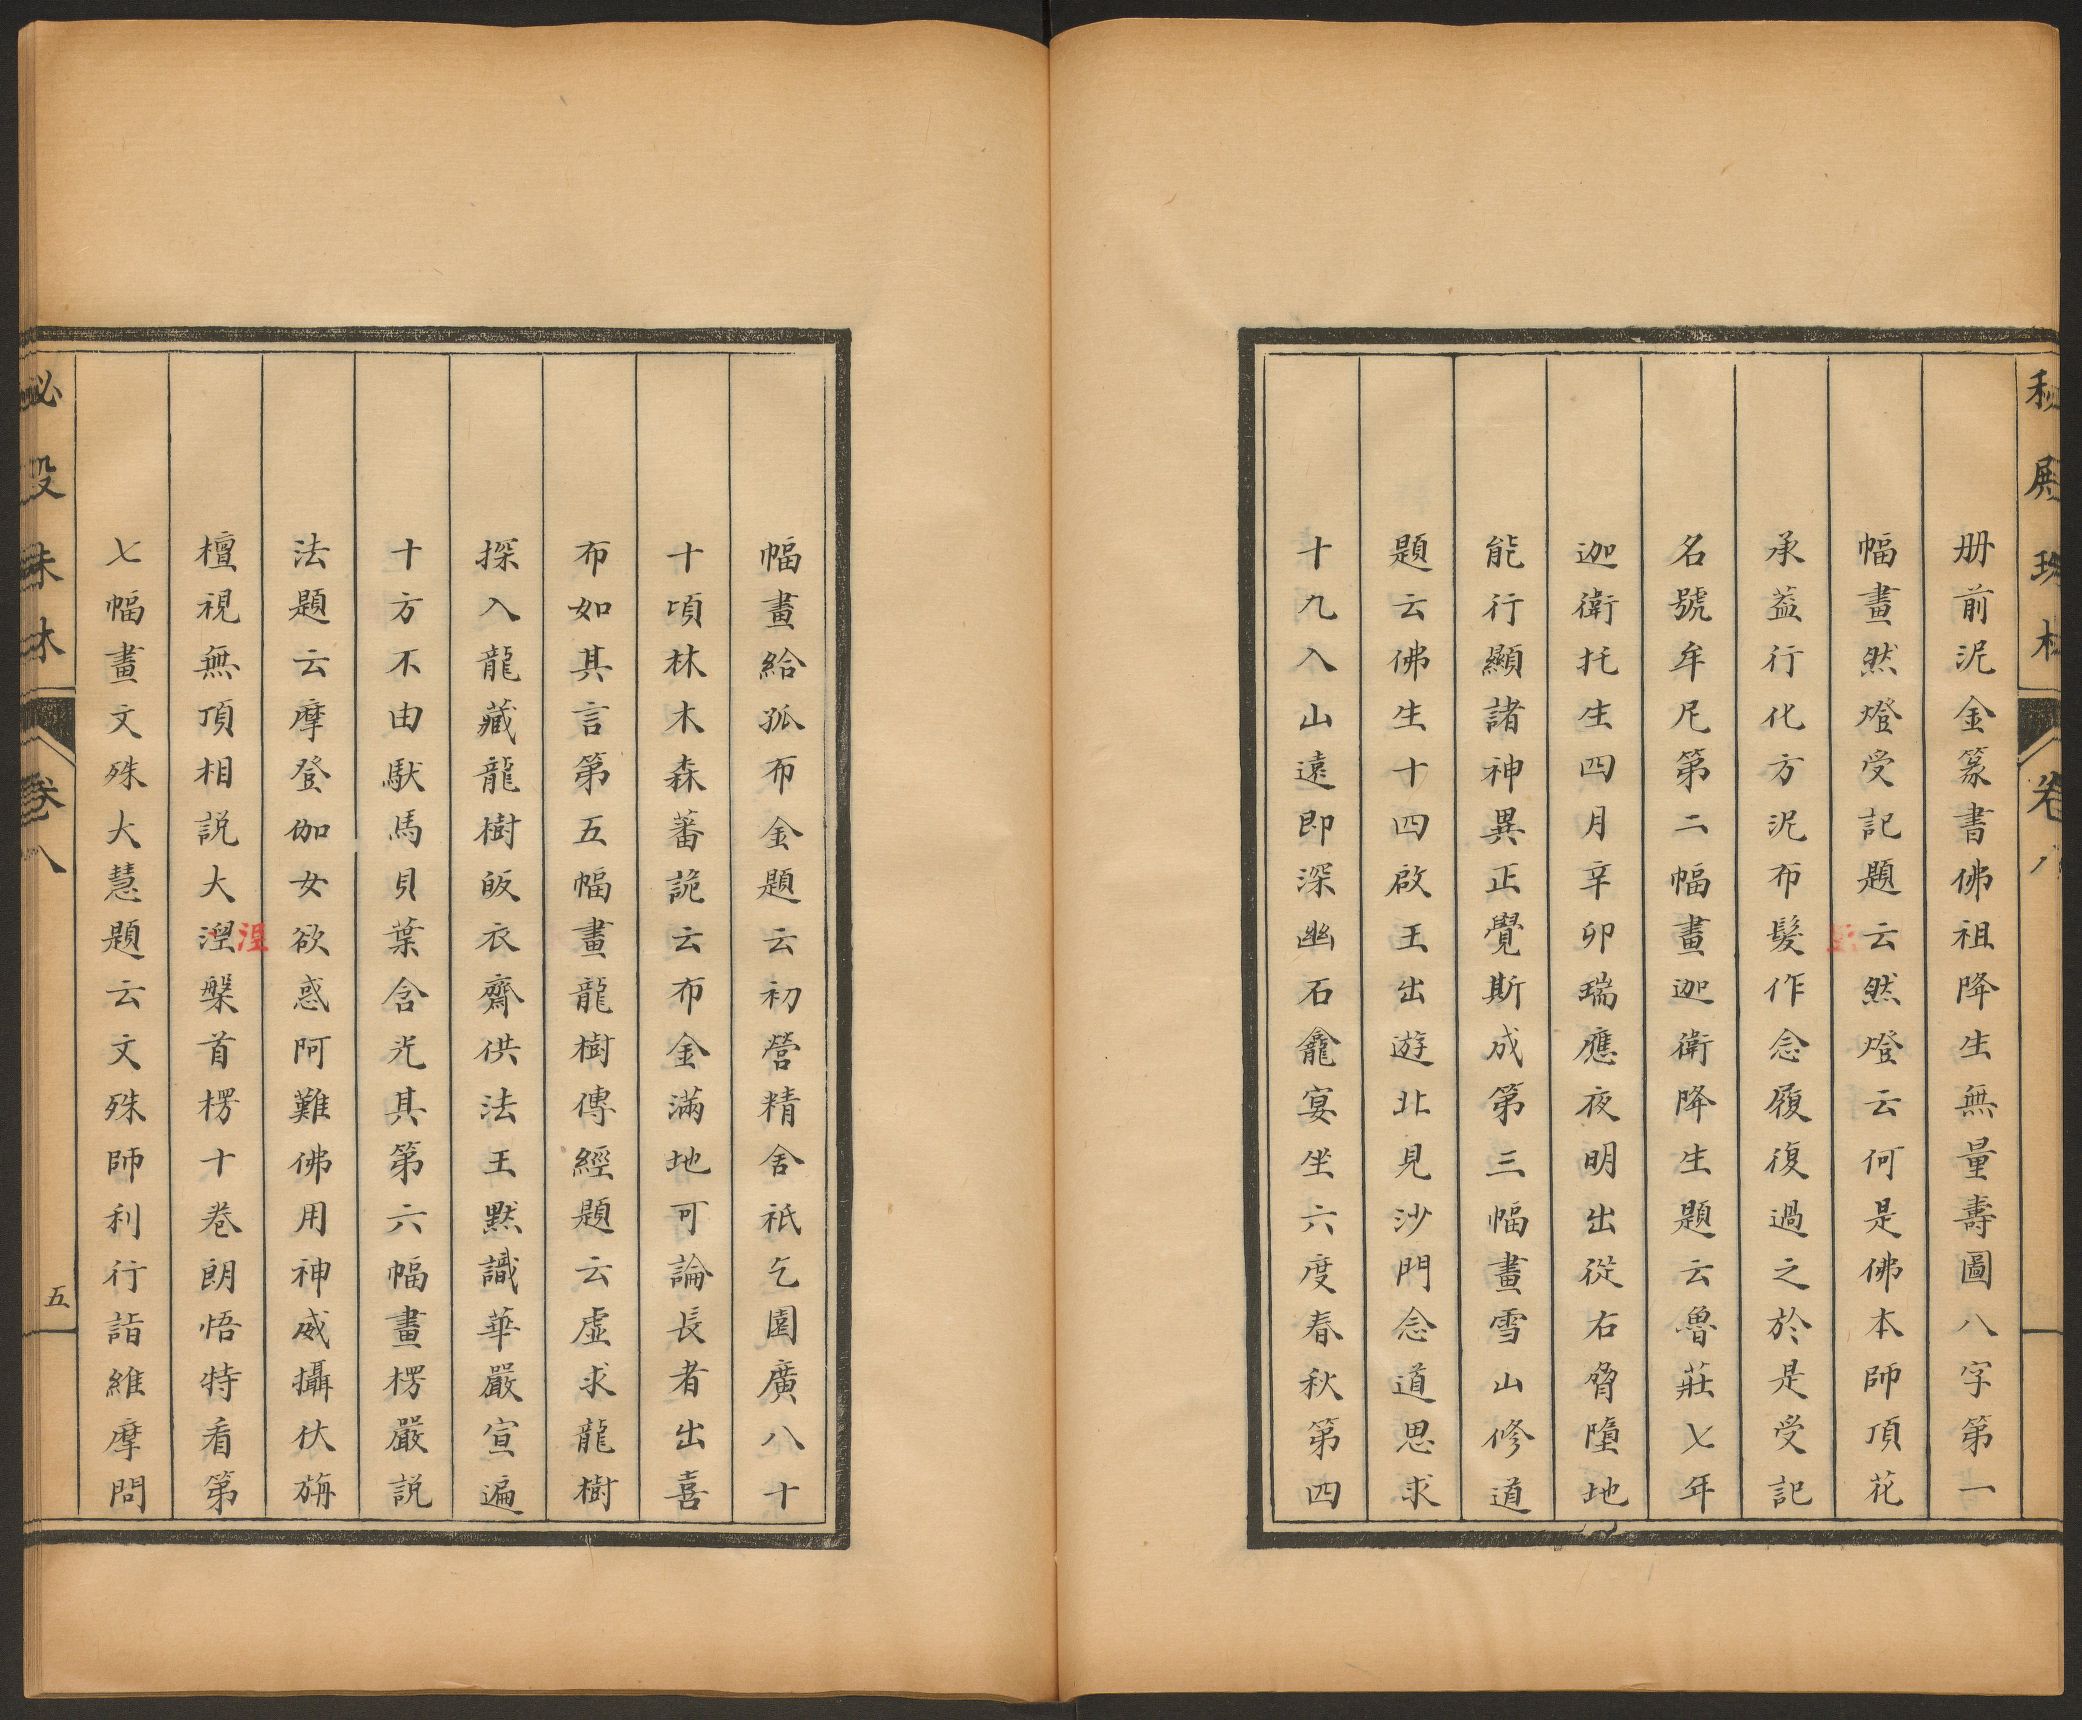 冊前泥金篆書佛祖降生無量壽圖八字第一
幅畫然燈受記題云然燈云何是佛本師頂花
承葢行化方泥布髮作念履復過之於是受記
名號牟尼第二幅畫迦衛降生題云魯莊七年
迦衛托生四月辛卯瑞應夜明出從右脅墮地
能行顯諸神異正覺斯成第三幅畫雪山修道
題云佛生十四啟王出遊北見沙門念道思求
十九入山遠即深幽石龕宴坐六度春秋第四
幅畫給孤布金題云初營精舍祇乞園廣八十
十頃林木森蕃詭云布金滿地可論長者出喜
布如其言第五幅畫龍樹傳經題云虛求龍樹
探入龍藏龍樹皈衣齋供法王默識華嚴宣遍
十方不由馱馬貝葉含光其第六幅畫楞嚴說
法題云摩登伽女欲惑阿難佛用神威攝伏旃
檀視無頂相說大湼槃首楞十卷朗悟特看第
涅
七幅畫文殊大慧題云文殊師利行詣維摩問
卷八
五